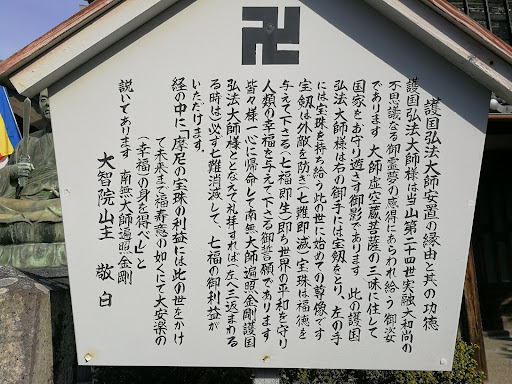 卍
護国弘法大師安置の縁由と其の功徳
護国弘法大師様は当山第二十四世実融大和尚の
不思議なる御霊夢の感得にあらわれ給う御姿
であります 大師虚空蔵菩薩の三昧に住して
国家をお守り遊す御影であります 此の護国
弘法大師様は右の御手には宝剱をとり、左の手
には宝珠を持ち給う此の世に始めての尊像です
宝剱は外敵を防ぎ(七難即滅)宝珠は福徳を
与えて下さる(七福即生)即ち世界の平和を守り
人類の幸福を与えて下さる御誓願であります
皆々様一心に帰命して南無大師遍照金剛護国
弘法大師様ととなえて礼拝すれば(左へ三返まわる
る時は)必ず七難消滅して、七福の御利益が
いただけます。
経の中に「摩尼の宝珠の利益には此の世をかけ
て未来まで福寿意の如くにて大安楽の
(幸福)の身を得べし」と
説いてあります 南無大師遍照金剛
大智院山主 敬白